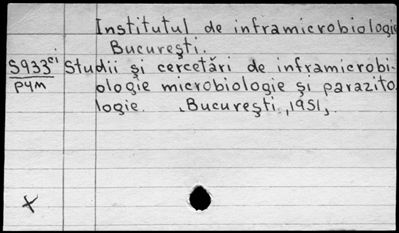 Institutul de inframicrobiologie
București.
S933ci Studii și cercetări de inframicrobi-
P4M ologie microbiologie și parazito
logie. București, 1951,
X